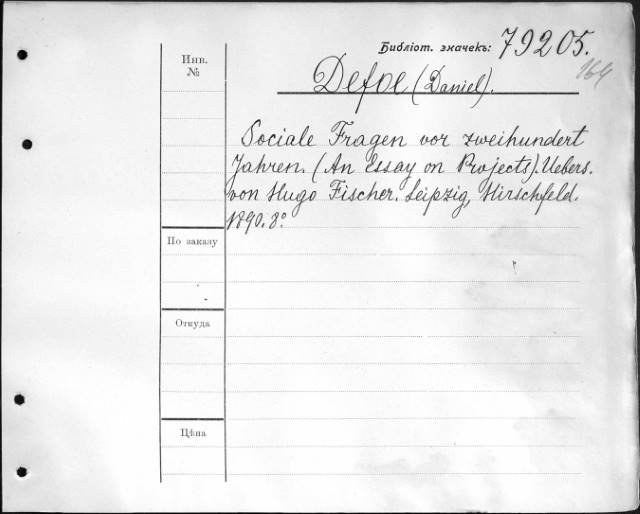 Библіот. значекъ: 79205.
164
Инв.
№
Defoe (Daniel).
Sociale Fragen vor zweihundert
Jahren. (An Essay on Projects). Uebers.
von Hugo Fischer. Leipzig, Hirschfeld.
1890. 8º
По заказу
Откуда
Цѣна